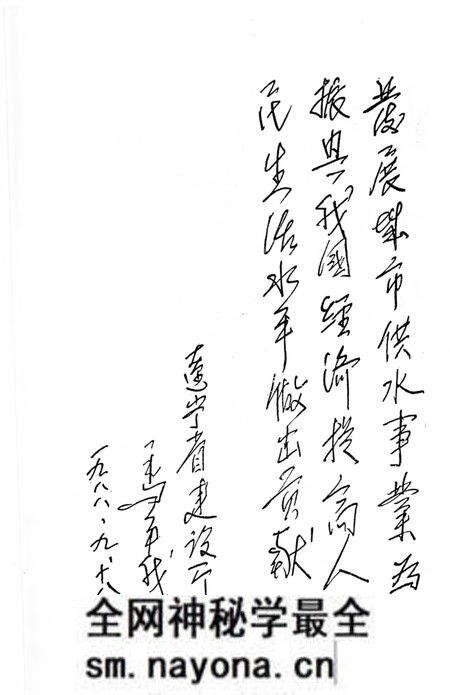 發展城市供水事業為
振興我國經濟提高人
民生活水平做出貢献
遼宁省建设厅
一九八八·九·十八
全网神秘学最全
sm.nayona.cn